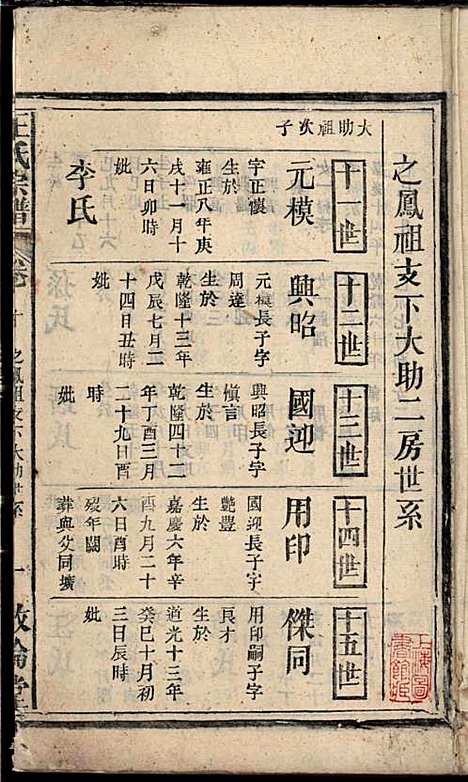 之鳳祖支下大助二房世系
十一世
大助祖次子
元模
字正
生於
雍正八年庚
戌十一月十
六日卯時
妣
李氏
十二世
興昭
元模長子字
周達
生於
乾隆十三年
戊辰七月二
十四日丑時
十三世
國迎
興昭長子字
慎言
生於
乾隆四十二
年丁酉三月
二十九日酉
時
妣
十四世
用印
國迎長子字
艷豐
生於
嘉慶六年辛
酉九月二十
六日酉時
歿年闕
葬與父同壙
十五世
傑同
用印嗣子字
良才
生於
道光十三年
癸巳十月初
三日辰時
妣
王氏宗譜
卷十
之鳳祖支下大助世系
一
敦倫堂
上海圖書館藏